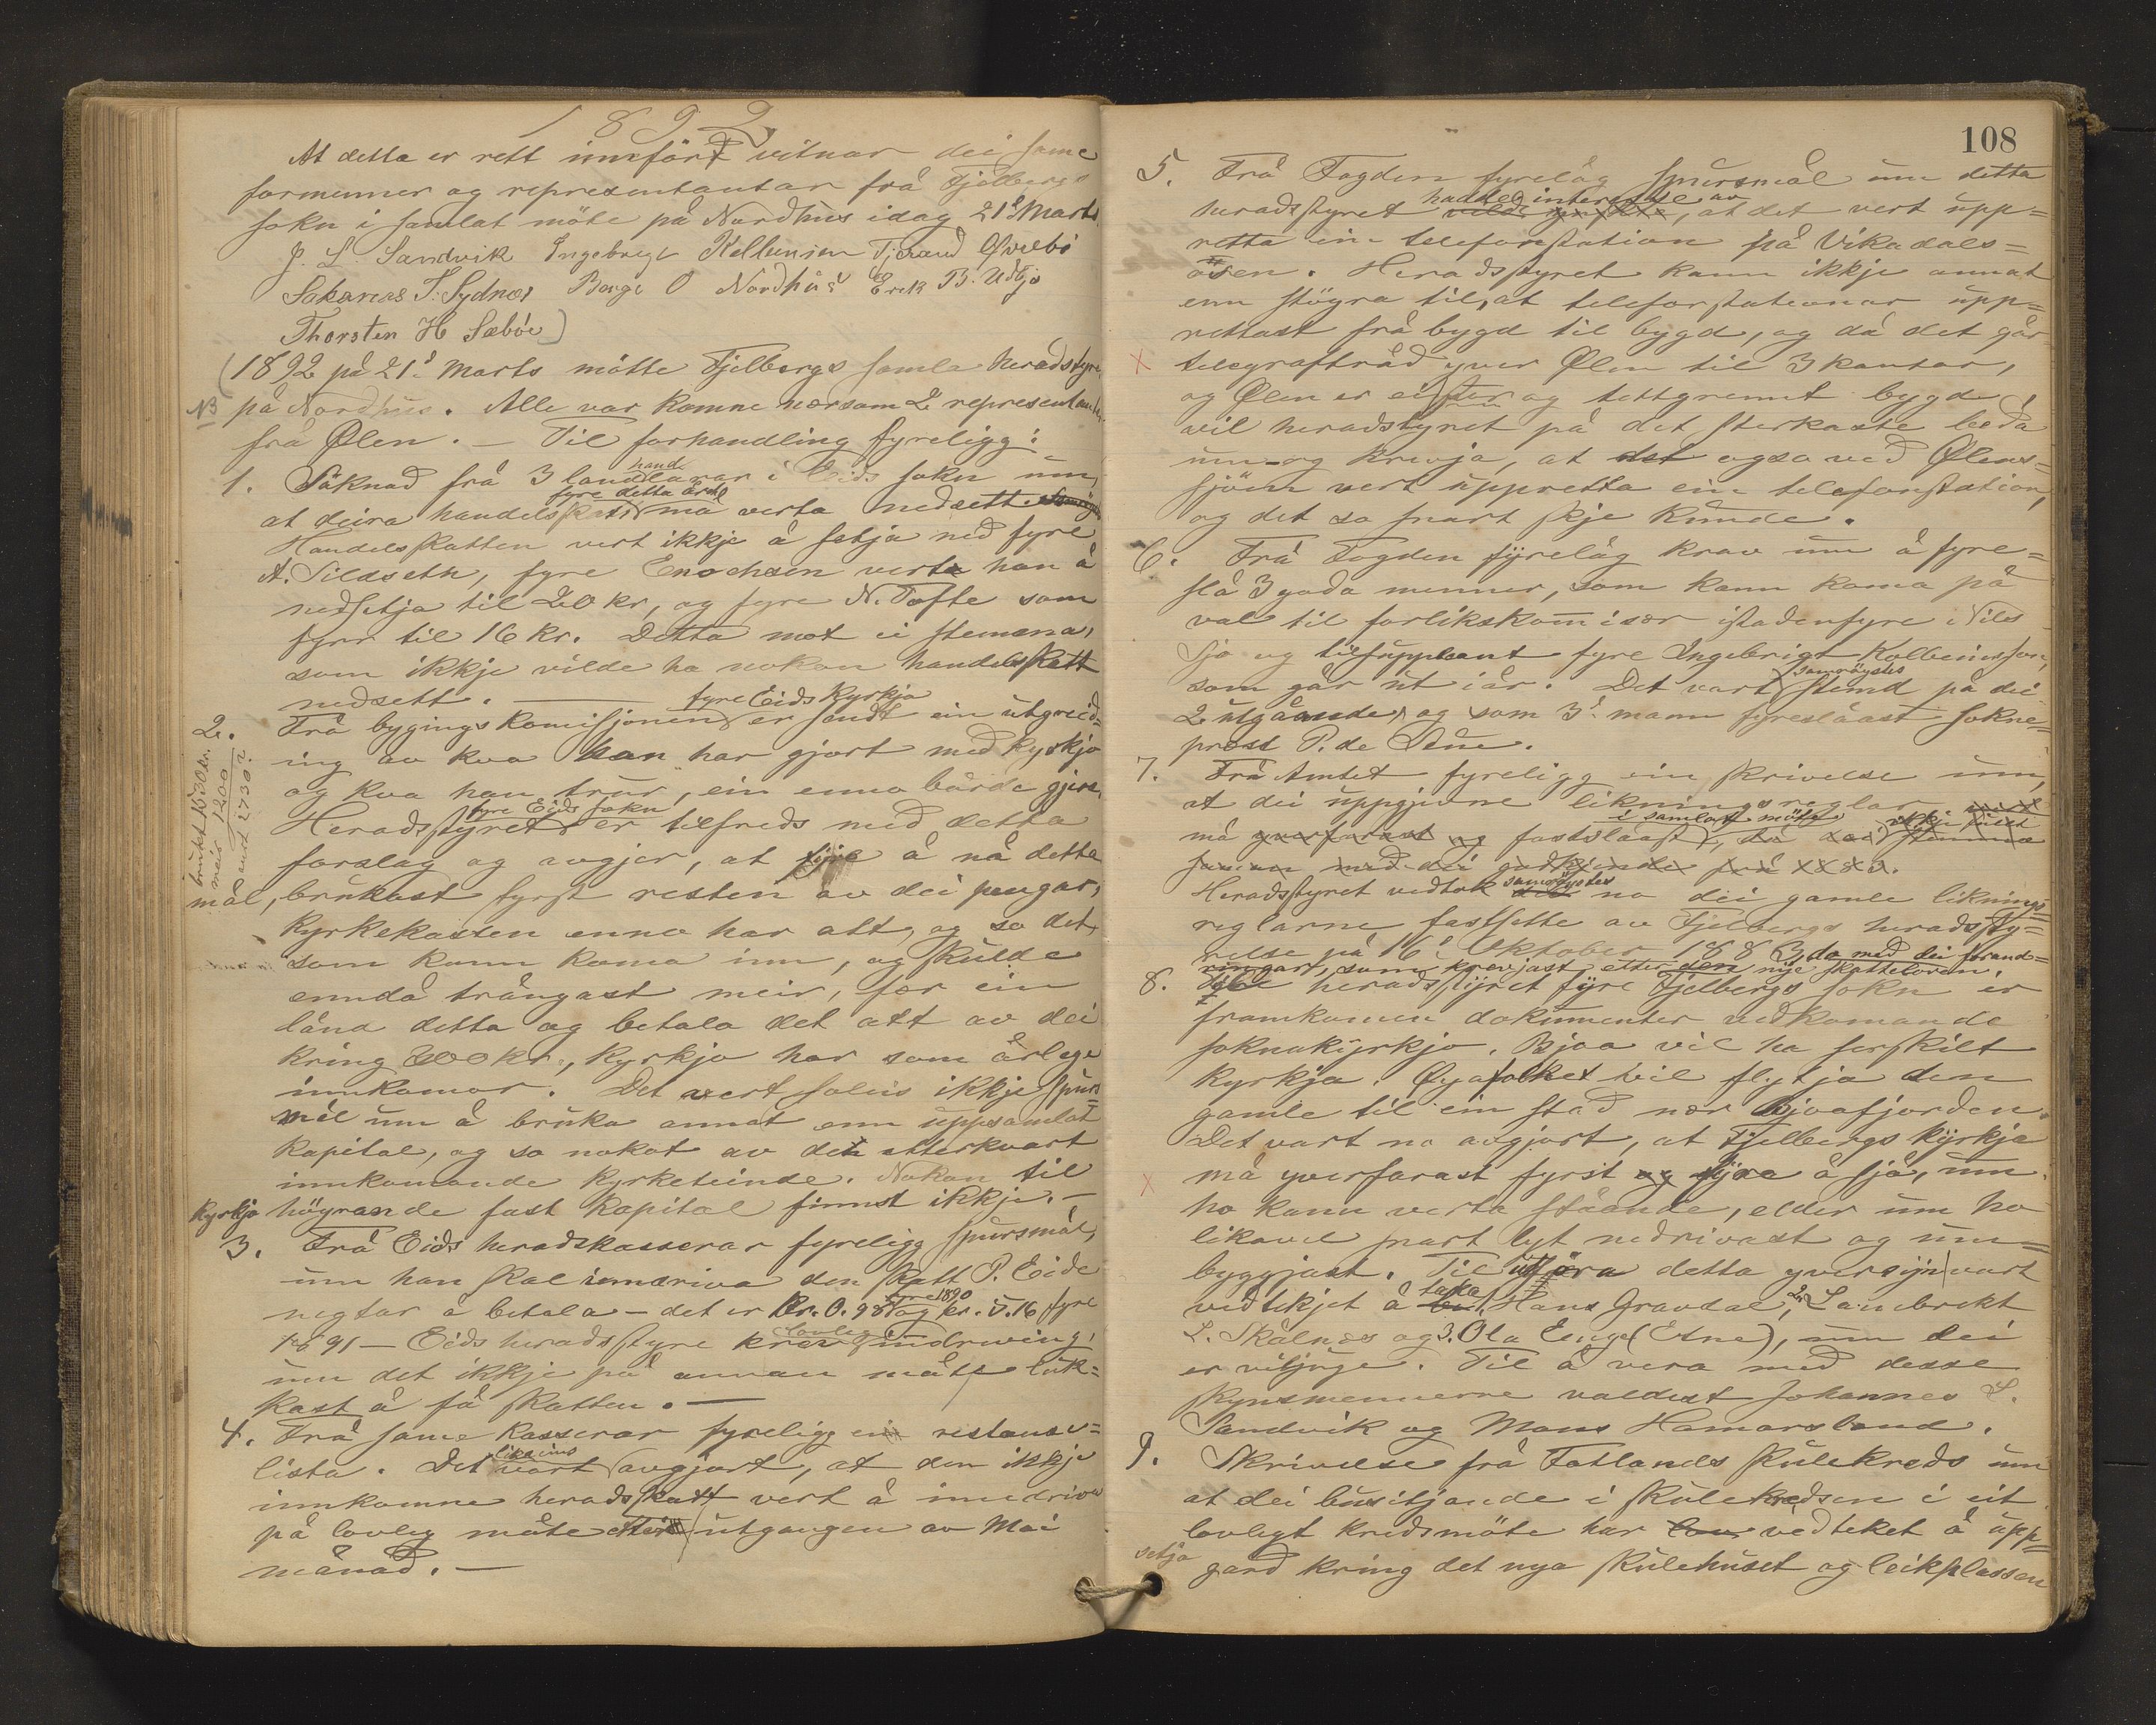 1892
At detta er rett innförd vitnar dei same
formenner og representantar frå Fjelbergs
sokn i samlat möte på Nordhus idag 21ˢ Marts
J. L. Sandvik Ingebregt Tjerand Ølvebö
Sakarias T. Sydnes Borge O Nordhus Erek B. Udbjo
Thorsten H Sæböe)
(1892 på 21ˢ Marts mötte Fjelbergs samla heradstyre
NB på Nordhus. Alle var komne nærsom 2 representantar
frå Ølen. — Til forhandling fyreligg:
1. Söknad frå 3 landhandlarar i Eids sokn um,
at deira handelsskatt fyre detta året må verta nedsette
Handelsskatten vert ikkje å setja ned fyre
A. Sildseth, fyre Enochsen verte han å
nedsetja til 20 kr, og fyre N. Tofte som
fyrr til 16 kr. Detta mot ei stemma,
som ikkje vilde ha nokon handelsskatt
nedsett. —
2. Frå bygingskomisjonen fyre Eids kyrkja er sendt ein utgreid=
ing av kva han har gjort med kyrkjo
og kva han trur, ein enno burde gjera.
Heradsstyret fyre Eids sokn er tilfreds med detta
forslag og avgjer, at fyre å nå detta
mål, brukast fyrst resten av dei pengar,
kyrkekassen enno har att, og so det
som kann koma inn, og skulde
enndå trångast meir, fær ein
låna detta og betala det att av dei
kring 200 kr., kyrkjo har som årlege
innkomor. Det vert soleis ikkje spurs=
mål um å bruka annat enn uppsamlat
kapital, og so nokot av det etterkvart
innkomande kyrketeinde. Nokon til
kyrkjo höyrande fast kapital finnst ikkje. —
brukt 1530 kr.
meir 1200
2730
3. Frå Eids heradskasserar fyreligg spursmål,
um han skal inndriva den skatt P. Eide
negtar å betala — det er kr. 0.98 fyre 1890 og kr. 5.16 fyre
1891 — Eids heradsstyre krev lovleg inndriving,
um det ikkje på annan måte luk=
kast å få skatten. —
4. Frå same kasserar fyreligg ein restanse=
lista. Det vart likeins avgjort, at den ikkje
innkomne heradsskatt vert å inndriva
på lovleg måte etter utgangen av Mai
månad. —
108
5. Frå Fogden fyrelåg spursmål um detta
heradsstyret hadde interesse av, at det vert upp=
retta ein telefonstation på Vikadals=
ösen. Heradsstyret kann ikkje annat
enn stögra til, at telefonstationar upp=
rettast frå bygd til bygd, og då det går
telegraftråd yver Ølen til 3 kantar,
og Ølen er ei stor og tettgrennt bygd,
vil heradstyret på det sterkaste beda
um og krevja, at det ogso ved Ølens=
sjöen vert uppretta ein telefonstation,
og det so snart skje kunde.
6. Frå Fogden fyrelåg krav um å fyre=
slå 3 goda menner, som kann koma på
val til forlikskomisær istadenfyre Nils
Sjo og til suppleant fyre Ingebrigt Kolbeinsson,
som går ut i år. Det vart samröystes stemd på dei
2 utgåande, og som 3ˢ mann fyreslåast sokne=
prest P. de Seue.
7. Frå Amtet fyreligg ein skrivelse um,
at dei uppgjevne likningsreglar
må yverfarast og fastslåast i samlat möte, då dei ikkje stemma
saman med dei godkjende frå 1883.
Heradsstyret vedtok samröystes no dei gamle liknings=
reglarne, fastsette av Fjelbergs heradssty=
relse på 16ˢ Oktober 1883, da med dei forand=
ringar, som krevjast etter den nye skatteloven.
8. Til heradsstyret fyre Fjelbergs sokn er
framkomen dokumenter vedkomande
soknakyrkjo. Bjoa vil ha serskilt
kyrkja. Øyafolket vil flytja den
gamle til ein stad nær Bjoafjorden.
Det vart no avgjort, at Fjelbergs kyrkja
må yverfarast fyrst og fyre å sjå, um
ho kann verta ståande, elder um ho
likavel snart lyt nedrivast og um=
byggjast. Til å utföra detta yversyn vart
vedtekjet å taka 1. Hans Gravdal, 2. Lambrekt
L. Skålnes og 3. Ola Enge (Etne), um dei
er viljuge. Til å vera med desse
skynsmennerne valdest Johannes L.
Sandvik og Mons Hamarsland.
9. Skrivelse frå Fatlands skulekreds um
at dei busitjande i skulekredsen i eit
lovlegt kredsmöte har vedteket å upp=
setja gard kring det nya skulehuset og leikplassen